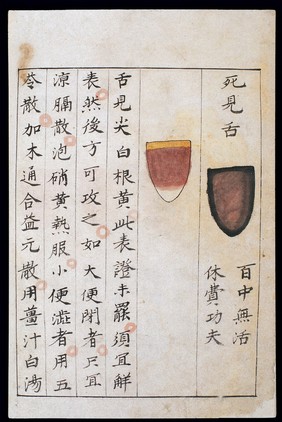 死見舌
百中無活
休費功夫
舌見尖白根黃此表證未罷須宜解
表然後方可攻之如大便閉者只宜
涼膈散泡硝黃熱服小便澁者用五
苓散加木通合益元散用薑汁白湯